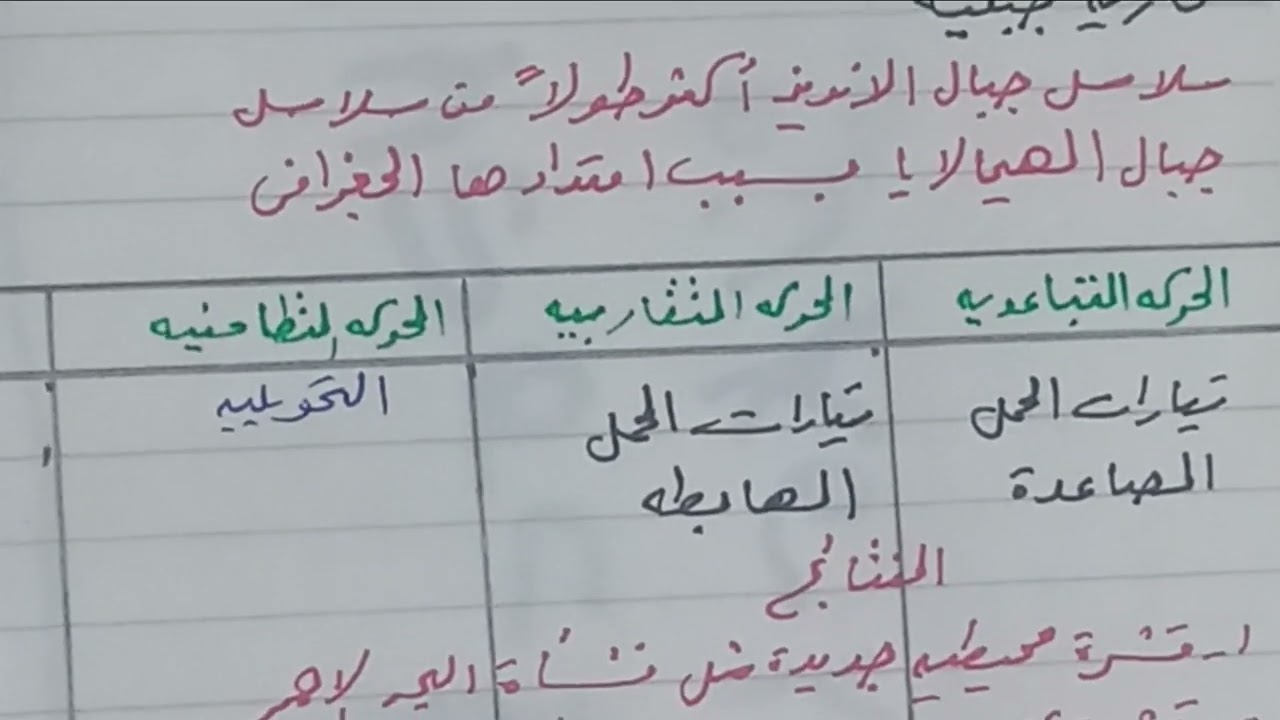 سلاسل جبال الانديز أكثر طولاً من سلاسل
جبال الهيمالايا بسبب امتدادها الجغرافى
الحركه التباعديه
الحركه التقاربيه
الحركه لنطاحنيه
تيارات الحمل
الصاعدة
تيارات الحمل
الهابطه
التحويليه
النتائج
١- قشرة محيطيه جديدة مثل نشأة البحر لاحمر